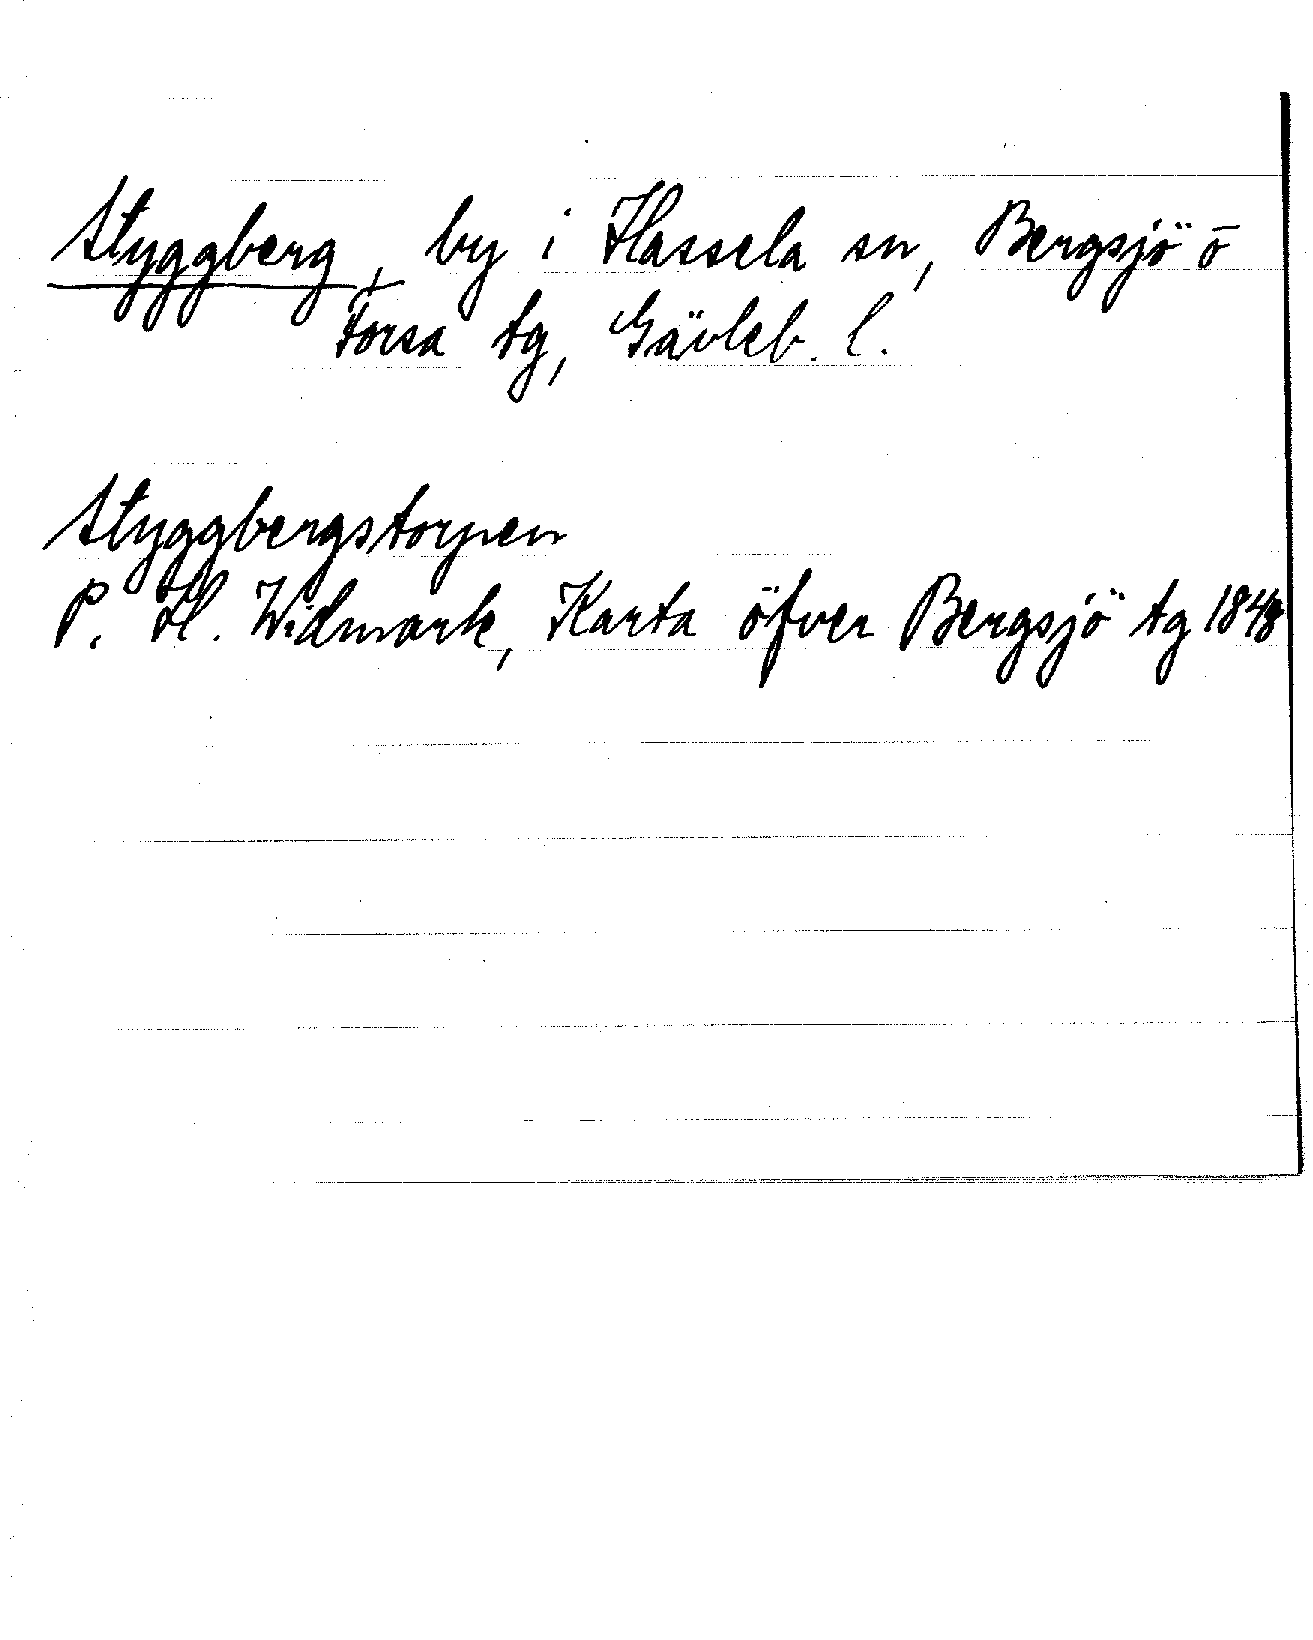 Styggberg, by i Hassela sn, Bergsjö o
Forsa tg, Gävleb. l.
Styggbergstorpen
P. H. Widmark, Karta öfver Bergsjö tg